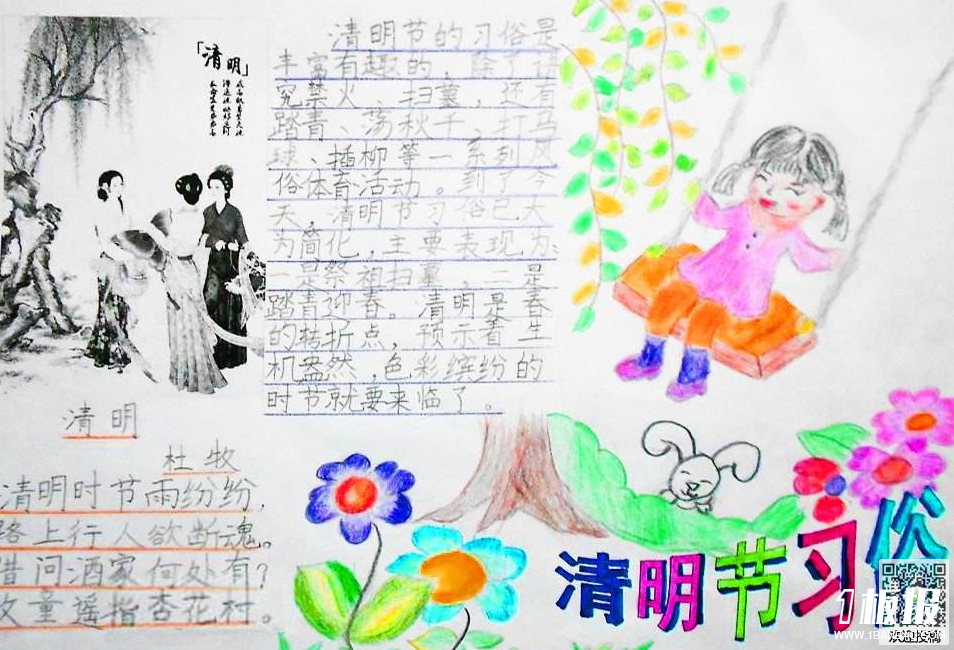 「清明」
清明节的习俗是
丰富有趣的,除了讲
究禁火、扫墓,还有
踏青、荡秋千、打马
球、插柳等一系列风
俗体育活动。到了今
天,清明节习俗已大
为简化,主要表现为:
一是祭祖扫墓,二是
踏青迎春。清明是春
的转折点,预示着生
机盎然,色彩缤纷的
时节就要来临了。
清明
杜牧
清明时节雨纷纷,
路上行人欲断魂。
借问酒家何处有?
牧童遥指杏花村。
清明节习俗
1板报
WWW.1BANBAO.COM
欢迎投稿